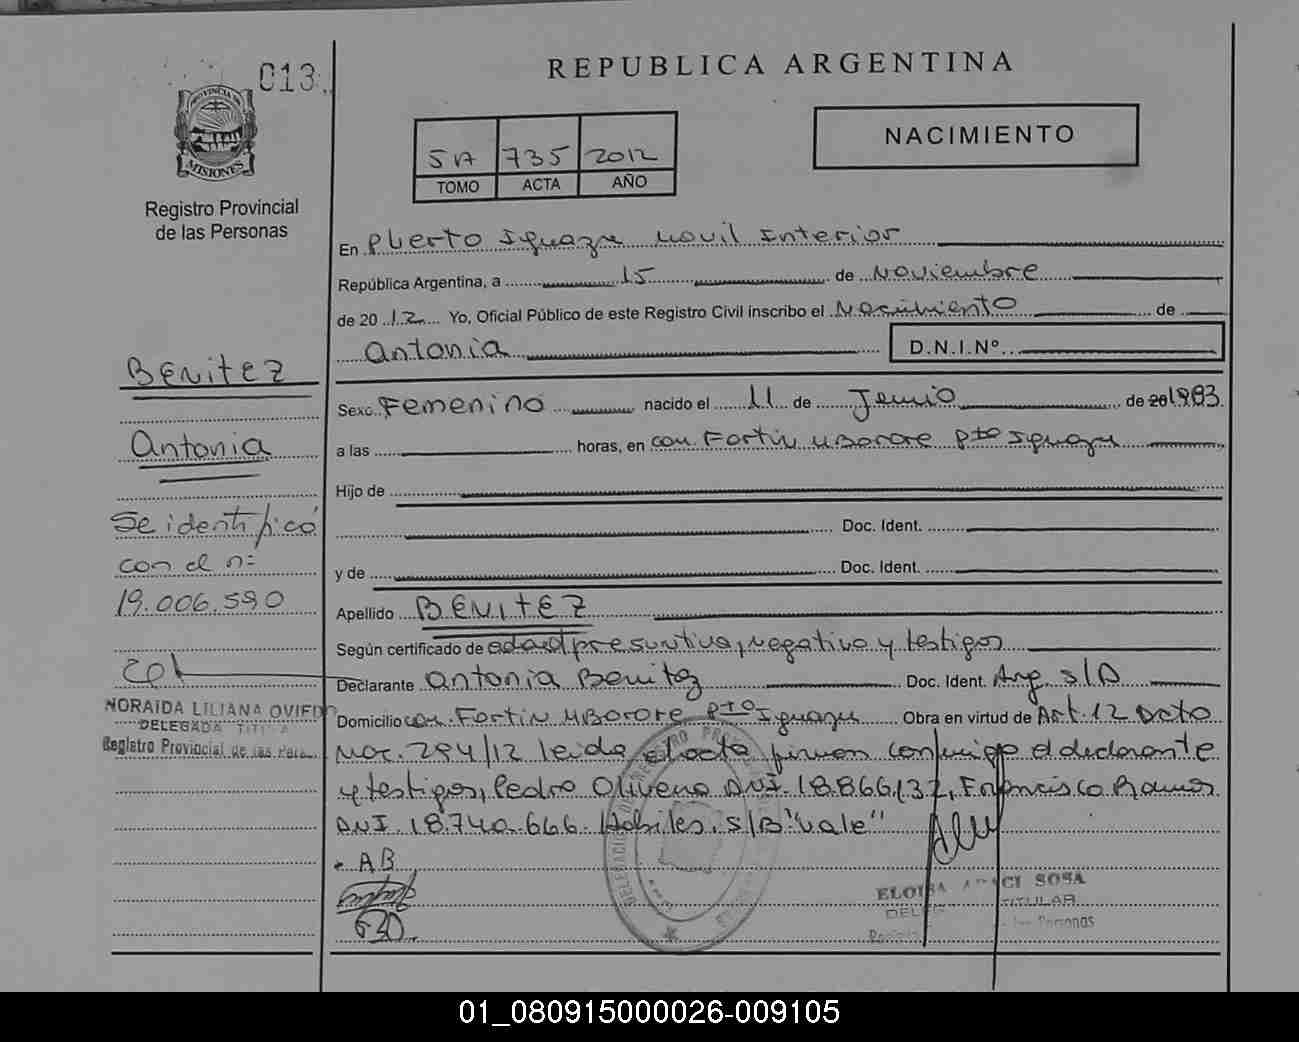 013
REPUBLICA ARGENTINA
PROVINCIA DE
MISIONES
Registro Provincial
de las Personas
5 A 735 2012
TOMO ACTA AÑO
NACIMIENTO
En Puerto Iguazu Movil Interior
República Argentina, a 15 de Noviembre
de 20 12 Yo, Oficial Público de este Registro Civil inscribo el Nacimiento de
Antonia D.N.I.Nº
BENITEZ
Sexo Femenino nacido el 11 de Junio de 20 1983
Antonia
a las horas, en com Fortin MBORORE Pto Iguazu
Hijo de
Se identificó
Doc. Ident.
con el nº
y de Doc. Ident.
19.006.590
Apellido BENITEZ
Según certificado de edad presuntiva, negativo y testigos
Declarante Antonia Benitez Doc. Ident. Arg. S/D
NORAIDA LILIANA OVIEDO
DELEGADA TITULAR
Registro Provincial de las Pers
Domicilio com Fortin MBORORE Pto Iguazu Obra en virtud de Art. 12 Dcto
Nac. 294/12 leida el acta firman conmigo el declarante
y testigos, Pedro Olivera DNI. 18.866.132, Francisco Ramos
DNI 18.740.666. Habiles. S/B "vale"
AB
ELOISA SOSA
TITULAR
Personas
01_080915000026-009105